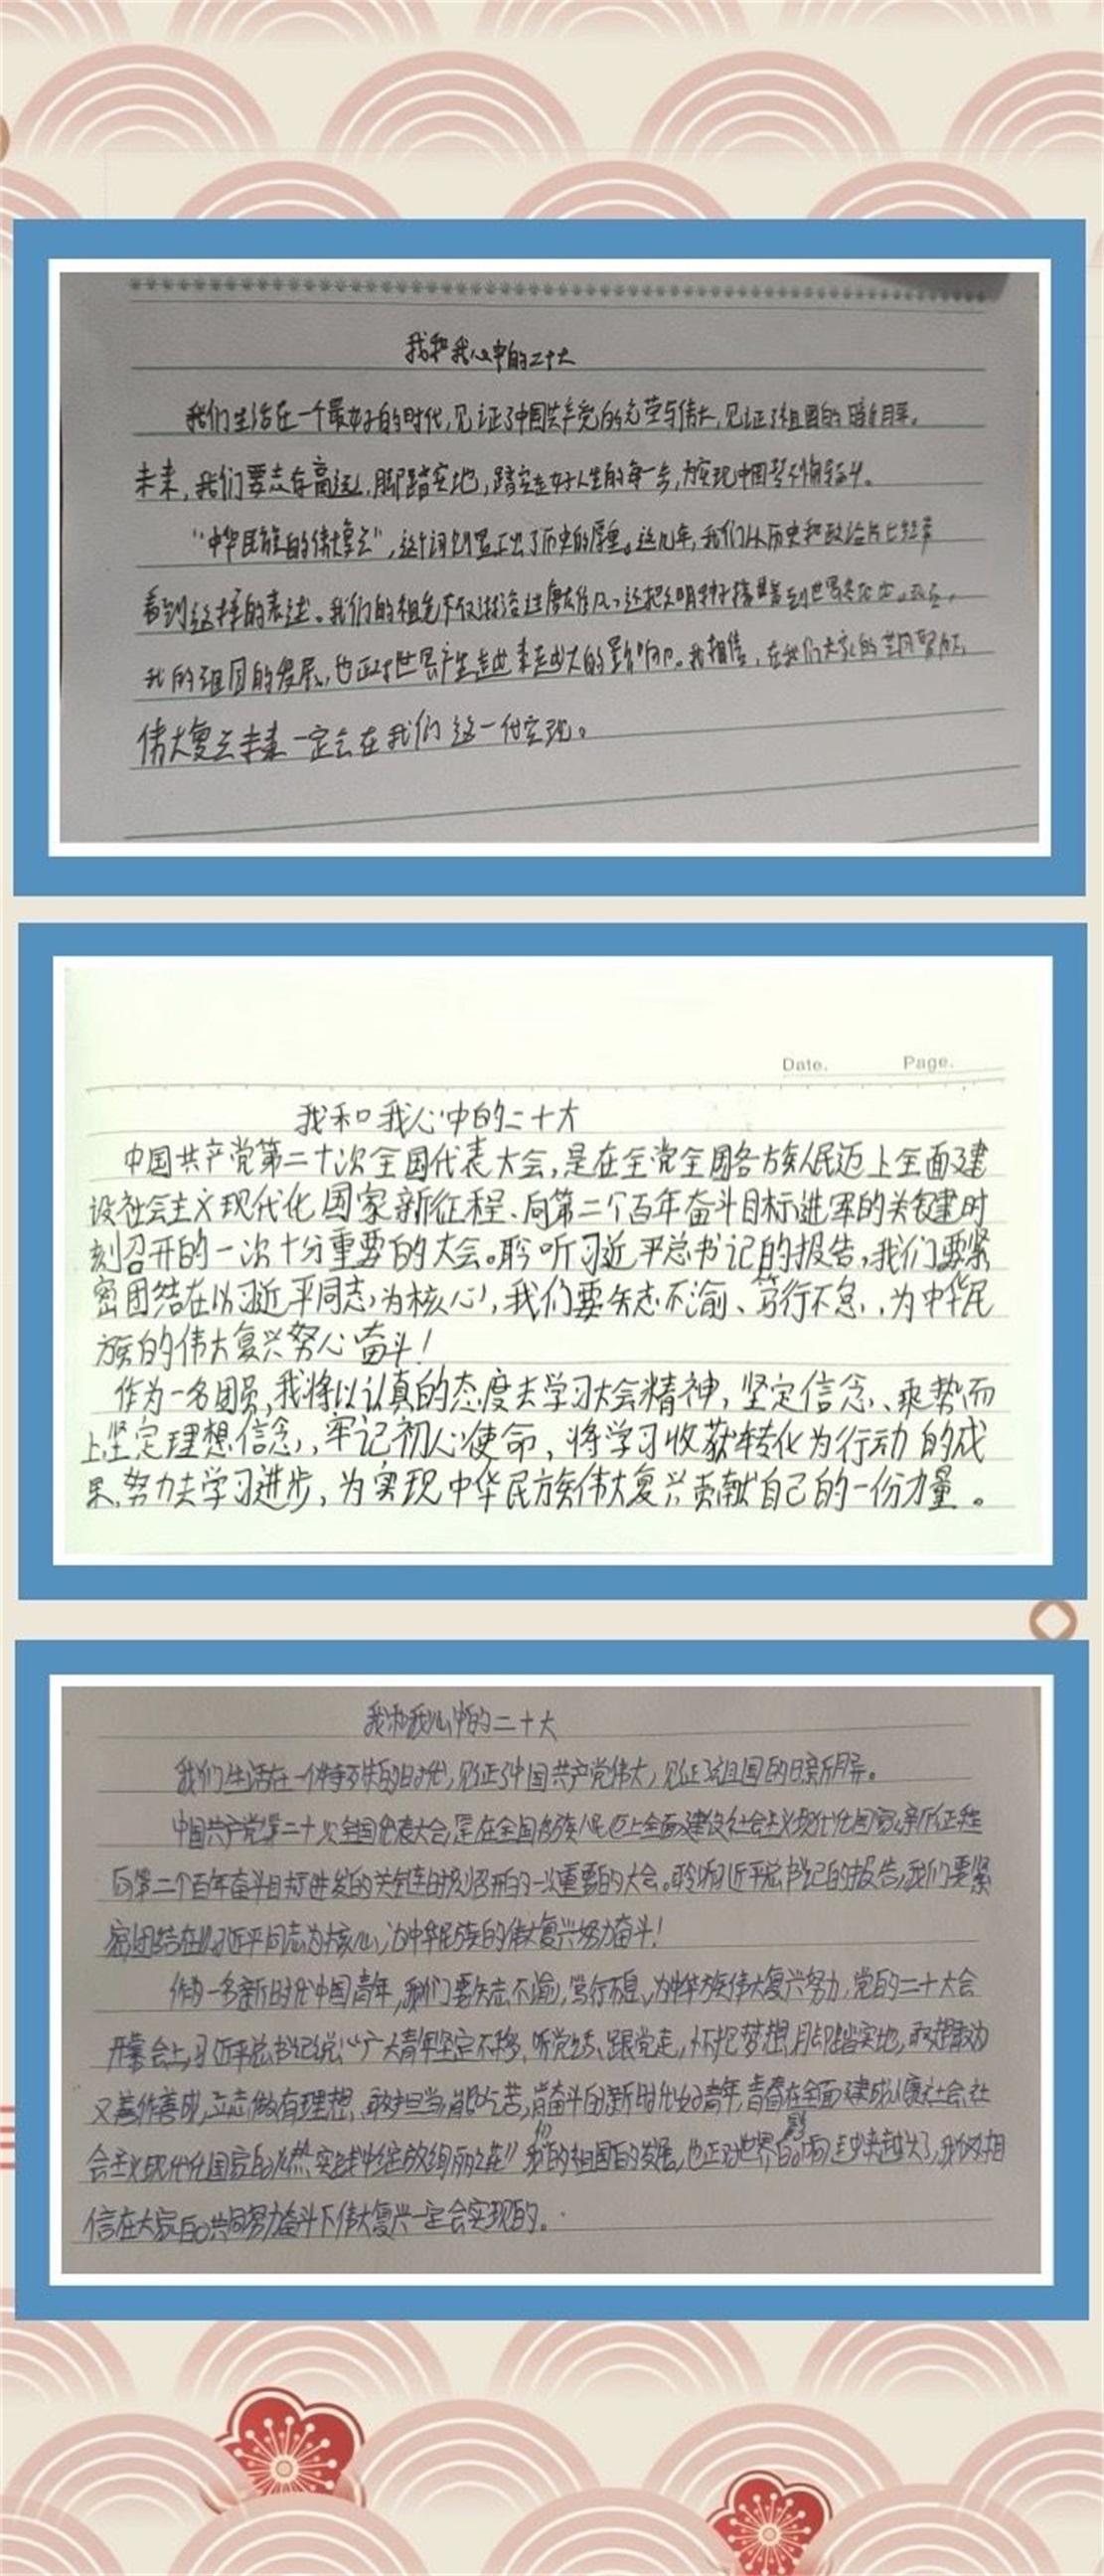 我和我心中的二十大
我们生活在一个最好的时代,见证了中国共产党的光荣与伟大,见证了祖国的日新月异。
未来,我们要志存高远,脚踏实地,踏实走好人生的每一步,为实现中国梦不懈奋斗。
“中华民族的伟大复兴”,这个词凸显正出了历史的厚重。这几年,我们从历史和政治片上经常
看到这样的表述。我们的祖先不仅
我的祖国的发展,也正对世界产生越来越大的影响。我相信,在我们大家的共同努力下
伟大复兴未来一定会在我们这一代实现。
Date. Page.
我和我心中的二十大
中国共产党第二十次全国代表大会,是在全党全国各族人民迈上全面建
设社会主义现代化国家新征程、向第二个百年奋斗目标进军的关键时
刻召开的一次十分重要的大会。聆听习近平总书记的报告,我们要紧
密团结在以习近平同志为核心,我们要矢志不渝、笃行不怠,为中华民
族的伟大复兴努心奋斗!
作为一名团员,我将以认真的态度去学习大会精神,坚定信念、乘势而
上坚定理想信念,牢记初心使命,将学习收获转化为行动的成
果,努力去学习进步,为实现中华民族伟大复兴贡献自己的一份力量。
我和我心中的二十大
我们生活在一个特殊的时代,见证了中国共产党伟大,见证了祖国的日新月异。
中国共产党第二十次全国代表大会,是在全国各族人民迈上全面建设社会主义现代化国家新征程
向第二个百年奋斗目标进发的关键时刻召开的一次重要的大会。聆听习近平总书记的报告,我们要紧
密团结在以习近平同志为核心,为中华民族的伟大复兴努力奋斗!
作为一名新时代中国青年,我们要矢志不渝,笃行不息,为中华民族伟大复兴努力,党的二十大会
开幕会上,习近平总书记说:“广大青年坚定不移、听党话、跟党走,怀抱梦想,脚踏实地,敢想敢为
又善作善成,立志做有理想、敢担当,能吃苦,肯奋斗的新时代好青年,青春在全面建成小康社会,社
会主义现代化国家的火热实践中绽放绚丽之花” 我们的祖国的发展,也正对世界的影响越来越大了,我们相
信在大家的共同努力奋斗下伟大复兴一定会实现的。